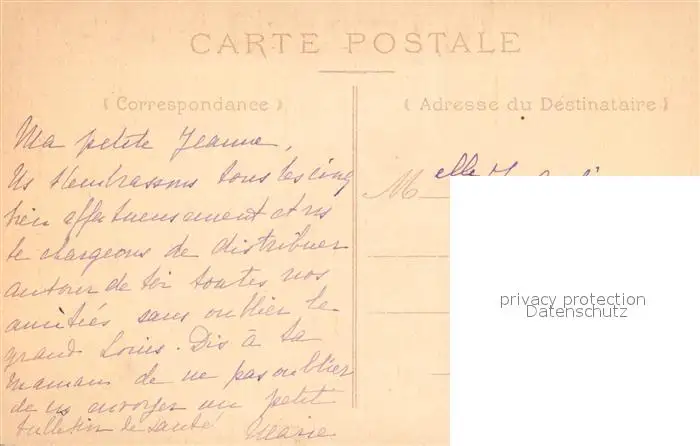 CARTE POSTALE
(Correspondance)
(Adresse du Destinataire)
Ma petite Jeanne,
Ns t'embrassons tous les cinq
bien affectueusement et ns
te chargeons de distribuer
autour de toi toutes nos
amitiés sans oublier le
grand Louis. Dis à ta
maman de ne pas oublier
de ns envoyer un petit
bulletin de santé
Marie
M elle
privacy protection
Datenschutz